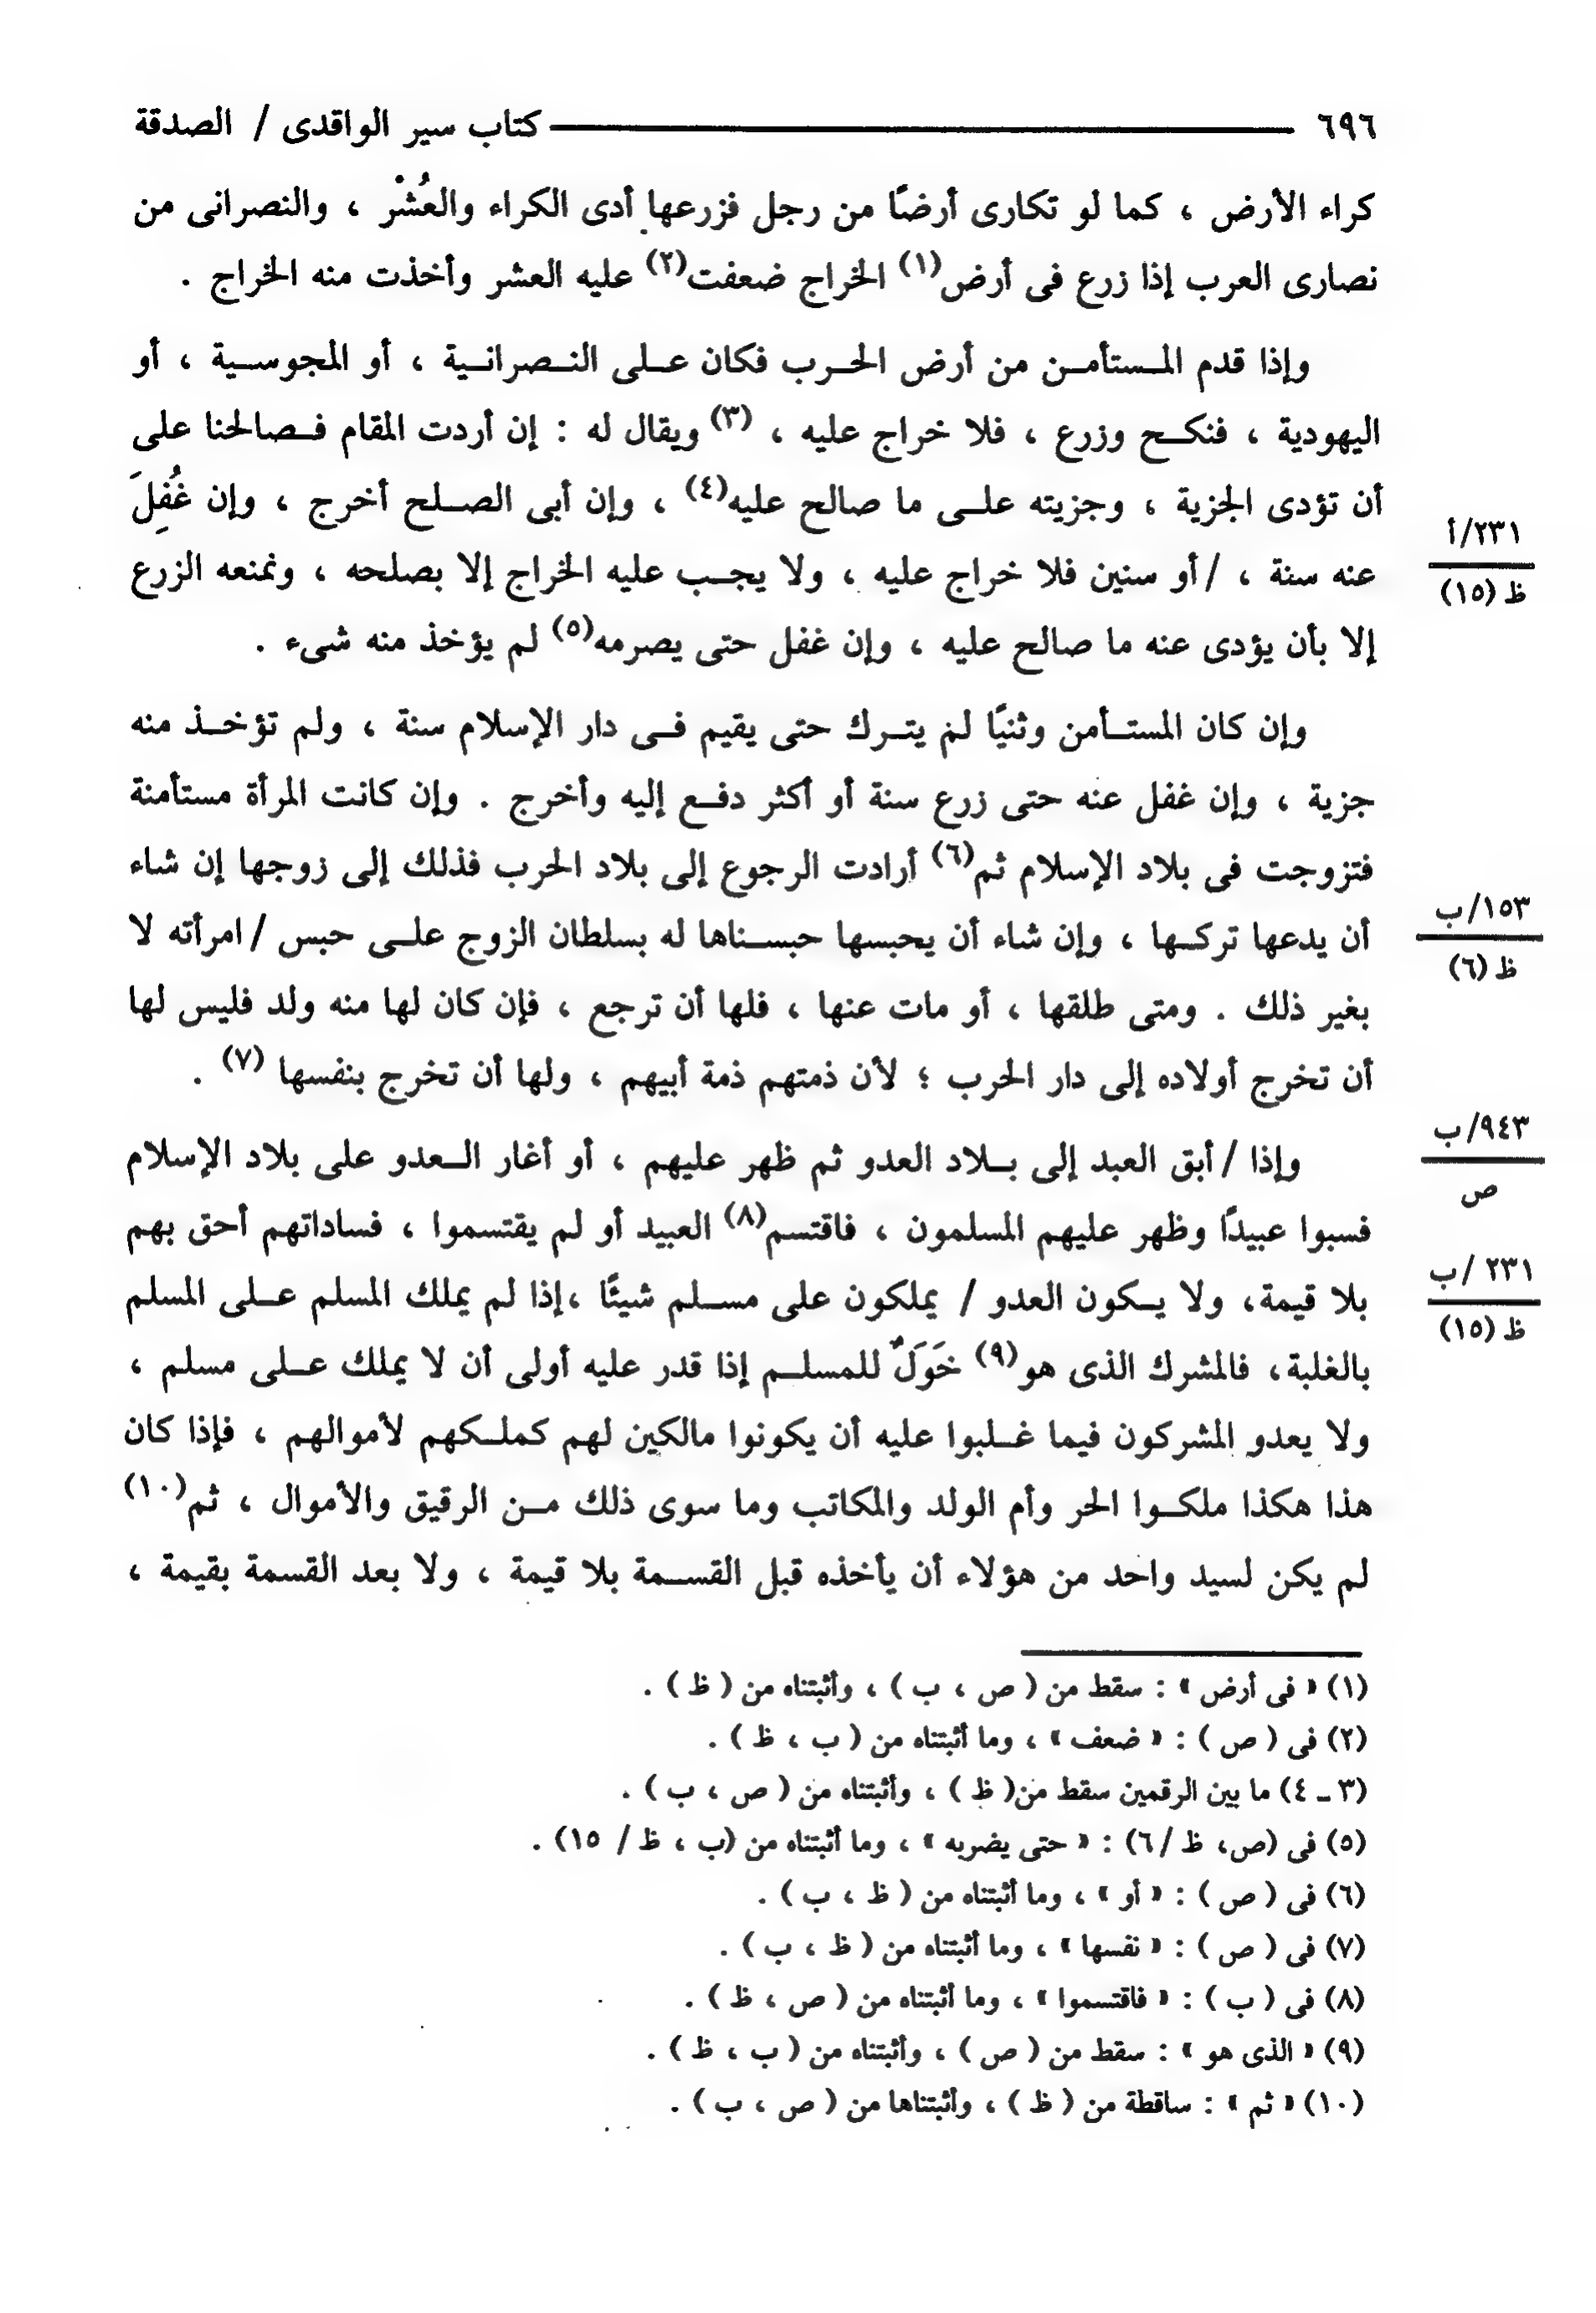 ٦٩٦ كتاب سير الواقدى / الصدقة
كراء الأرض ، كما لو تكارى أرضًا من رجل فزرعها أدى الكراء والعُشْر ، والنصرانى من
نصارى العرب إذا زرع فى أرض(١) الخراج ضعفت(٢) عليه العشر وأخذت منه الخراج .
وإذا قدم المستأمن من أرض الحرب فكان على النصرانية ، أو المجوسية ، أو
اليهودية ، فنكح وزرع ، فلا خراج عليه ، (٣) ويقال له : إن أردت المقام فصالحنا على
أن تؤدى الجزية ، وجزيته على ما صالح عليه(٤) ، وإن أبى الصلح أخرج ، وإن غُفِلَ
عنه سنة ، / أو سنين فلا خراج عليه ، ولا يجب عليه الخراج إلا بصلحه ، ونمنعه الزرع
٢٣١/أ
ظ (١٥)
إلا بأن يؤدى عنه ما صالح عليه ، وإن غفل حتى يصرمه(٥) لم يؤخذ منه شىء .
وإن كان المستأمن وثنيًا لم يترك حتى يقيم فى دار الإسلام سنة ، ولم تؤخذ منه
جزية ، وإن غفل عنه حتى زرع سنة أو أكثر دفع إليه وأخرج . وإن كانت المرأة مستأمنة
فتزوجت فى بلاد الإسلام ثم(٦) أرادت الرجوع إلى بلاد الحرب فذلك إلى زوجها إن شاء
أن يدعها تركها ، وإن شاء أن يحبسها حبسناها له بسلطان الزوج على حبس / امرأته لا
١٥٣/ب
ظ (٦)
بغير ذلك . ومتى طلقها ، أو مات عنها ، فلها أن ترجع ، فإن كان لها منه ولد فليس لها
أن تخرج أولاده إلى دار الحرب ؛ لأن ذمتهم ذمة أبيهم ، ولها أن تخرج بنفسها (٧) .
وإذا / أبق العبد إلى بلاد العدو ثم ظهر عليهم ، أو أغار العدو على بلاد الإسلام
٩٤٣/ب
ص
فسبوا عبيدًا وظهر عليهم المسلمون ، فاقتسم(٨) العبيد أو لم يقتسموا ، فساداتهم أحق بهم
بلا قيمة، ولا يكون العدو / يملكون على مسلم شيئًا ،إذا لم يملك المسلم على المسلم
٢٣١ /ب
ظ (١٥)
بالغلبة، فالمشرك الذى هو(٩) خَوَلٌ للمسلم إذا قدر عليه أولى أن لا يملك على مسلم ،
ولا يعدو المشركون فيما غلبوا عليه أن يكونوا مالكين لهم كملكهم لأموالهم ، فإذا كان
هذا هكذا ملكوا الحر وأم الولد والمكاتب وما سوى ذلك من الرقيق والأموال ، ثم(١٠)
لم يكن لسيد واحد من هؤلاء أن يأخذه قبل القسمة بلا قيمة ، ولا بعد القسمة بقيمة ،
(١) « فى أرض » : سقط من ( ص ، ب ) ، وأثبتناه من ( ظ ) .
(٢) فى ( ص ) : « ضعف » ، وما أثبتناه من ( ب ، ظ ) .
(٣ ـ ٤) ما بين الرقمين سقط من( ظ ) ، وأثبتناه من ( ص ، ب ) .
(٥) فى (ص، ظ /٦) : « حتى يضربه » ، وما أثبتناه من (ب ، ظ / ١٥) .
(٦) فى ( ص ) : « أو » ، وما أثبتناه من ( ظ ، ب ) .
(٧) فى ( ص ) : « نفسها » ، وما أثبتناه من ( ظ ، ب ) .
(٨) فى ( ب ) : « فاقتسموا » ، وما أثبتناه من ( ص ، ظ ) .
(٩) « الذى هو » : سقط من ( ص ) ، وأثبتناه من ( ب ، ظ ) .
(١٠) « ثم » : ساقطة من ( ظ ) ، وأثبتناها من ( ص ، ب ) .